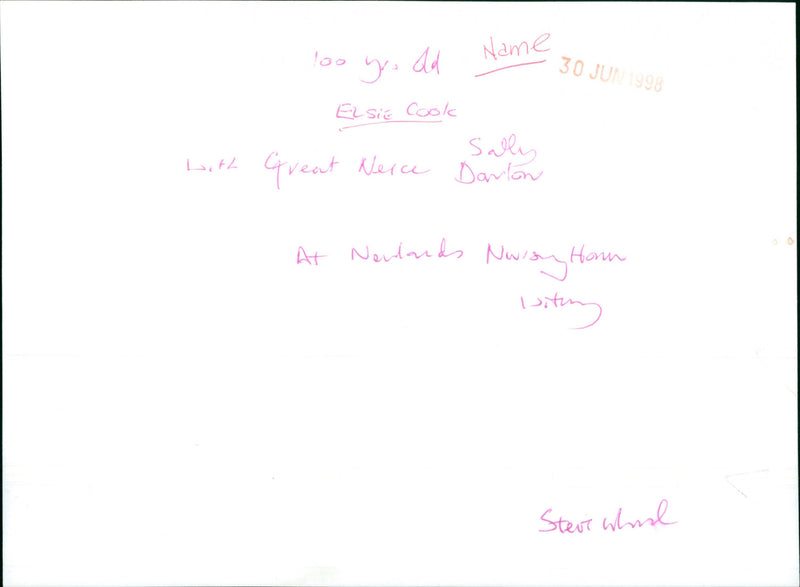 100 yrs Old Name
30 JUN 1998
ELSIE COOK
with Great Neice Sally
Danton
At Newlands Nursing Home
Witney
Steve